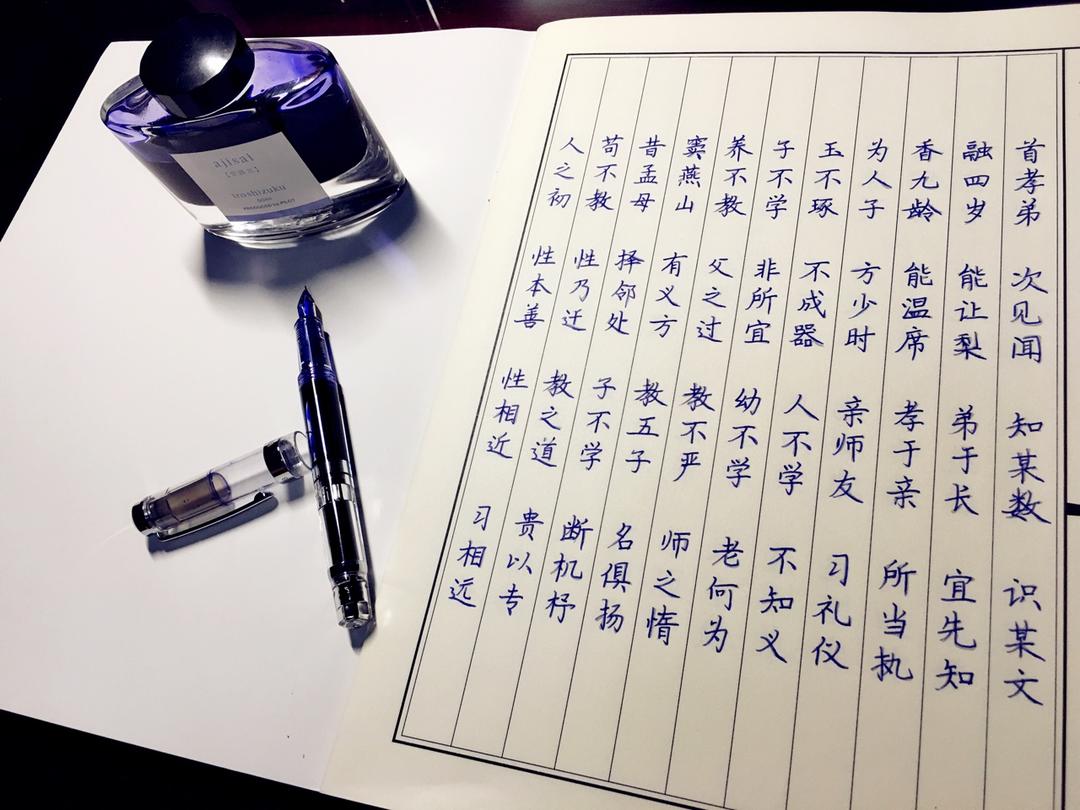 ajisai
iroshizuku
PRODUCED by PILOT
人之初 性本善 性相近 习相远
苟不教 性乃迁 教之道 贵以专
昔孟母 择邻处 子不学 断机杼
窦燕山 有义方 教五子 名俱扬
养不教 父之过 教不严 师之惰
子不学 非所宜 幼不学 老何为
玉不琢 不成器 人不学 不知义
为人子 方少时 亲师友 习礼仪
香九龄 能温席 孝于亲 所当执
融四岁 能让梨 弟于长 宜先知
首孝弟 次见闻 知某数 识某文